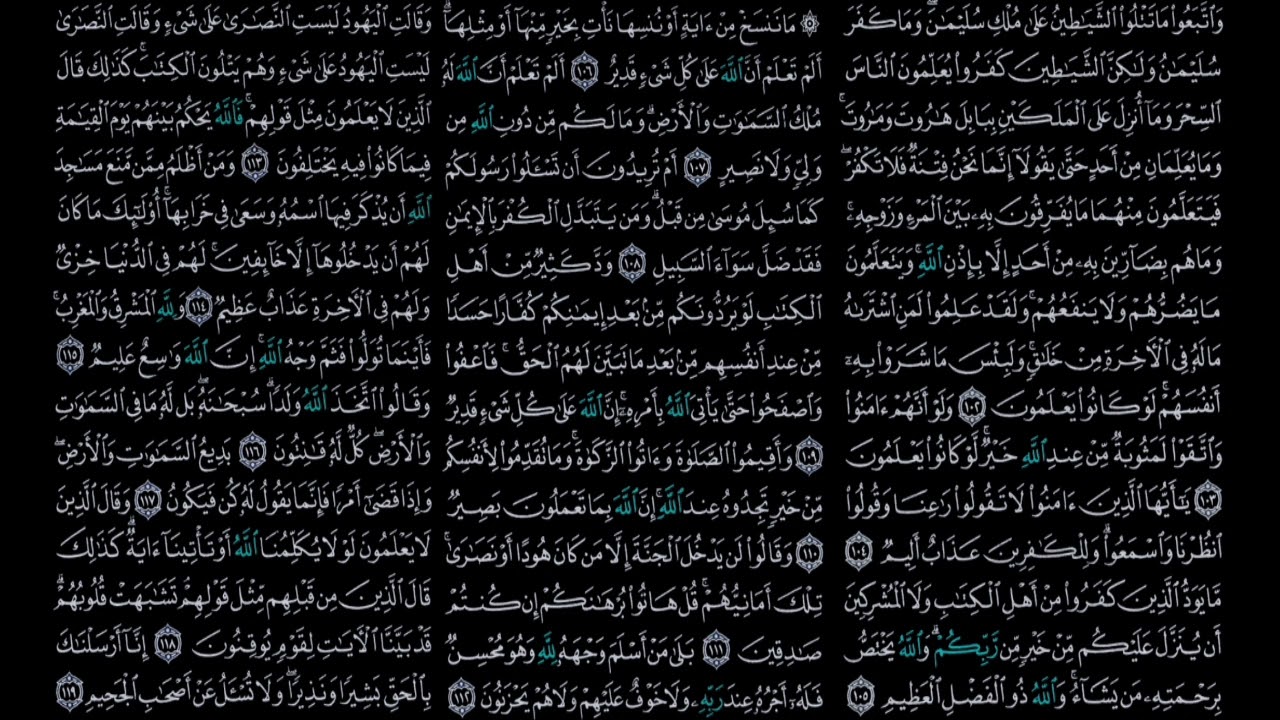 وَٱتَّبَعُوا۟ مَا تَتْلُوا۟ ٱلشَّيَٰطِينُ عَلَىٰ مُلْكِ سُلَيْمَٰنَ ۖ وَمَا كَفَرَ
سُلَيْمَٰنُ وَلَٰكِنَّ ٱلشَّيَٰطِينَ كَفَرُوا۟ يُعَلِّمُونَ ٱلنَّاسَ
ٱلسِّحْرَ وَمَآ أُنزِلَ عَلَى ٱلْمَلَكَيْنِ بِبَابِلَ هَٰرُوتَ وَمَٰرُوتَ ۚ
وَمَا يُعَلِّمَانِ مِنْ أَحَدٍ حَتَّىٰ يَقُولَآ إِنَّمَا نَحْنُ فِتْنَةٌ فَلَا تَكْفُرْ ۖ
فَيَتَعَلَّمُونَ مِنْهُمَا مَا يُفَرِّقُونَ بِهِۦ بَيْنَ ٱلْمَرْءِ وَزَوْجِهِۦ ۚ
وَمَا هُم بِضَآرِّينَ بِهِۦ مِنْ أَحَدٍ إِلَّا بِإِذْنِ ٱللَّهِ ۚ وَيَتَعَلَّمُونَ
مَا يَضُرُّهُمْ وَلَا يَنفَعُهُمْ ۚ وَلَقَدْ عَلِمُوا۟ لَمَنِ ٱشْتَرَىٰهُ
مَا لَهُۥ فِى ٱلْـَٔاخِرَةِ مِنْ خَلَٰقٍ ۚ وَلَبِئْسَ مَا شَرَوْا۟ بِهِۦٓ
أَنفُسَهُمْ ۚ لَوْ كَانُوا۟ يَعْلَمُونَ ١٠٢ وَلَوْ أَنَّهُمْ ءَامَنُوا۟
وَٱتَّقَوْا۟ لَمَثُوبَةٌ مِّنْ عِندِ ٱللَّهِ خَيْرٌ ۖ لَّوْ كَانُوا۟ يَعْلَمُونَ
١٠٣ يَٰٓأَيُّهَا ٱلَّذِينَ ءَامَنُوا۟ لَا تَقُولُوا۟ رَٰعِنَا وَقُولُوا۟
ٱنظُرْنَا وَٱسْمَعُوا۟ ۗ وَلِلْكَٰفِرِينَ عَذَابٌ أَلِيمٌ ١٠٤
مَّا يَوَدُّ ٱلَّذِينَ كَفَرُوا۟ مِنْ أَهْلِ ٱلْكِتَٰبِ وَلَا ٱلْمُشْرِكِينَ
أَن يُنَزَّلَ عَلَيْكُم مِّنْ خَيْرٍ مِّن رَّبِّكُمْ ۗ وَٱللَّهُ يَخْتَصُّ
بِرَحْمَتِهِۦ مَن يَشَآءُ ۚ وَٱللَّهُ ذُو ٱلْفَضْلِ ٱلْعَظِيمِ ١٠٥
۞ مَا نَنسَخْ مِنْ ءَايَةٍ أَوْ نُنسِهَا نَأْتِ بِخَيْرٍ مِّنْهَآ أَوْ مِثْلِهَآ ۗ
أَلَمْ تَعْلَمْ أَنَّ ٱللَّهَ عَلَىٰ كُلِّ شَىْءٍ قَدِيرٌ ١٠٦ أَلَمْ تَعْلَمْ أَنَّ ٱللَّهَ لَهُۥ
مُلْكُ ٱلسَّمَٰوَٰتِ وَٱلْأَرْضِ ۗ وَمَا لَكُم مِّن دُونِ ٱللَّهِ مِن
وَلِىٍّ وَلَا نَصِيرٍ ١٠٧ أَمْ تُرِيدُونَ أَن تَسْـَٔلُوا۟ رَسُولَكُمْ
كَمَا سُئِلَ مُوسَىٰ مِن قَبْلُ ۗ وَمَن يَتَبَدَّلِ ٱلْكُفْرَ بِٱلْإِيمَٰنِ
فَقَدْ ضَلَّ سَوَآءَ ٱلسَّبِيلِ ١٠٨ وَدَّ كَثِيرٌ مِّنْ أَهْلِ
ٱلْكِتَٰبِ لَوْ يَرُدُّونَكُم مِّنۢ بَعْدِ إِيمَٰنِكُمْ كُفَّارًا حَسَدًا
مِّنْ عِندِ أَنفُسِهِم مِّنۢ بَعْدِ مَا تَبَيَّنَ لَهُمُ ٱلْحَقُّ ۖ فَٱعْفُوا۟
وَٱصْفَحُوا۟ حَتَّىٰ يَأْتِىَ ٱللَّهُ بِأَمْرِهِۦٓ ۗ إِنَّ ٱللَّهَ عَلَىٰ كُلِّ شَىْءٍ قَدِيرٌ
١٠٩ وَأَقِيمُوا۟ ٱلصَّلَوٰةَ وَءَاتُوا۟ ٱلزَّكَوٰةَ ۚ وَمَا تُقَدِّمُوا۟ لِأَنفُسِكُم
مِّنْ خَيْرٍ تَجِدُوهُ عِندَ ٱللَّهِ ۗ إِنَّ ٱللَّهَ بِمَا تَعْمَلُونَ بَصِيرٌ
١١٠ وَقَالُوا۟ لَن يَدْخُلَ ٱلْجَنَّةَ إِلَّا مَن كَانَ هُودًا أَوْ نَصَٰرَىٰ ۗ
تِلْكَ أَمَانِيُّهُمْ ۗ قُلْ هَاتُوا۟ بُرْهَٰنَكُمْ إِن كُنتُمْ
صَٰدِقِينَ ١١١ بَلَىٰ مَنْ أَسْلَمَ وَجْهَهُۥ لِلَّهِ وَهُوَ مُحْسِنٌ
فَلَهُۥٓ أَجْرُهُۥ عِندَ رَبِّهِۦ وَلَا خَوْفٌ عَلَيْهِمْ وَلَا هُمْ يَحْزَنُونَ ١١٢
وَقَالَتِ ٱلْيَهُودُ لَيْسَتِ ٱلنَّصَٰرَىٰ عَلَىٰ شَىْءٍ وَقَالَتِ ٱلنَّصَٰرَىٰ
لَيْسَتِ ٱلْيَهُودُ عَلَىٰ شَىْءٍ وَهُمْ يَتْلُونَ ٱلْكِتَٰبَ ۗ كَذَٰلِكَ قَالَ
ٱلَّذِينَ لَا يَعْلَمُونَ مِثْلَ قَوْلِهِمْ ۚ فَٱللَّهُ يَحْكُمُ بَيْنَهُمْ يَوْمَ ٱلْقِيَٰمَةِ
فِيمَا كَانُوا۟ فِيهِ يَخْتَلِفُونَ ١١٣ وَمَنْ أَظْلَمُ مِمَّن مَّنَعَ مَسَٰجِدَ
ٱللَّهِ أَن يُذْكَرَ فِيهَا ٱسْمُهُۥ وَسَعَىٰ فِى خَرَابِهَآ ۚ أُو۟لَٰٓئِكَ مَا كَانَ
لَهُمْ أَن يَدْخُلُوهَآ إِلَّا خَآئِفِينَ ۚ لَهُمْ فِى ٱلدُّنْيَا خِزْىٌ
وَلَهُمْ فِى ٱلْـَٔاخِرَةِ عَذَابٌ عَظِيمٌ ١١٤ وَلِلَّهِ ٱلْمَشْرِقُ وَٱلْمَغْرِبُ ۚ
فَأَيْنَمَا تُوَلُّوا۟ فَثَمَّ وَجْهُ ٱللَّهِ ۚ إِنَّ ٱللَّهَ وَٰسِعٌ عَلِيمٌ ١١٥
وَقَالُوا۟ ٱتَّخَذَ ٱللَّهُ وَلَدًا ۗ سُبْحَٰنَهُۥ ۖ بَل لَّهُۥ مَا فِى ٱلسَّمَٰوَٰتِ
وَٱلْأَرْضِ ۖ كُلٌّ لَّهُۥ قَٰنِتُونَ ١١٦ بَدِيعُ ٱلسَّمَٰوَٰتِ وَٱلْأَرْضِ ۖ
وَإِذَا قَضَىٰٓ أَمْرًا فَإِنَّمَا يَقُولُ لَهُۥ كُن فَيَكُونُ ١١٧ وَقَالَ ٱلَّذِينَ
لَا يَعْلَمُونَ لَوْلَا يُكَلِّمُنَا ٱللَّهُ أَوْ تَأْتِينَآ ءَايَةٌ ۗ كَذَٰلِكَ
قَالَ ٱلَّذِينَ مِن قَبْلِهِم مِّثْلَ قَوْلِهِمْ ۘ تَشَٰبَهَتْ قُلُوبُهُمْ ۗ
قَدْ بَيَّنَّا ٱلْـَٔايَٰتِ لِقَوْمٍ يُوقِنُونَ ١١٨ إِنَّآ أَرْسَلْنَٰكَ
بِٱلْحَقِّ بَشِيرًا وَنَذِيرًا ۖ وَلَا تُسْـَٔلُ عَنْ أَصْحَٰبِ ٱلْجَحِيمِ ١١٩